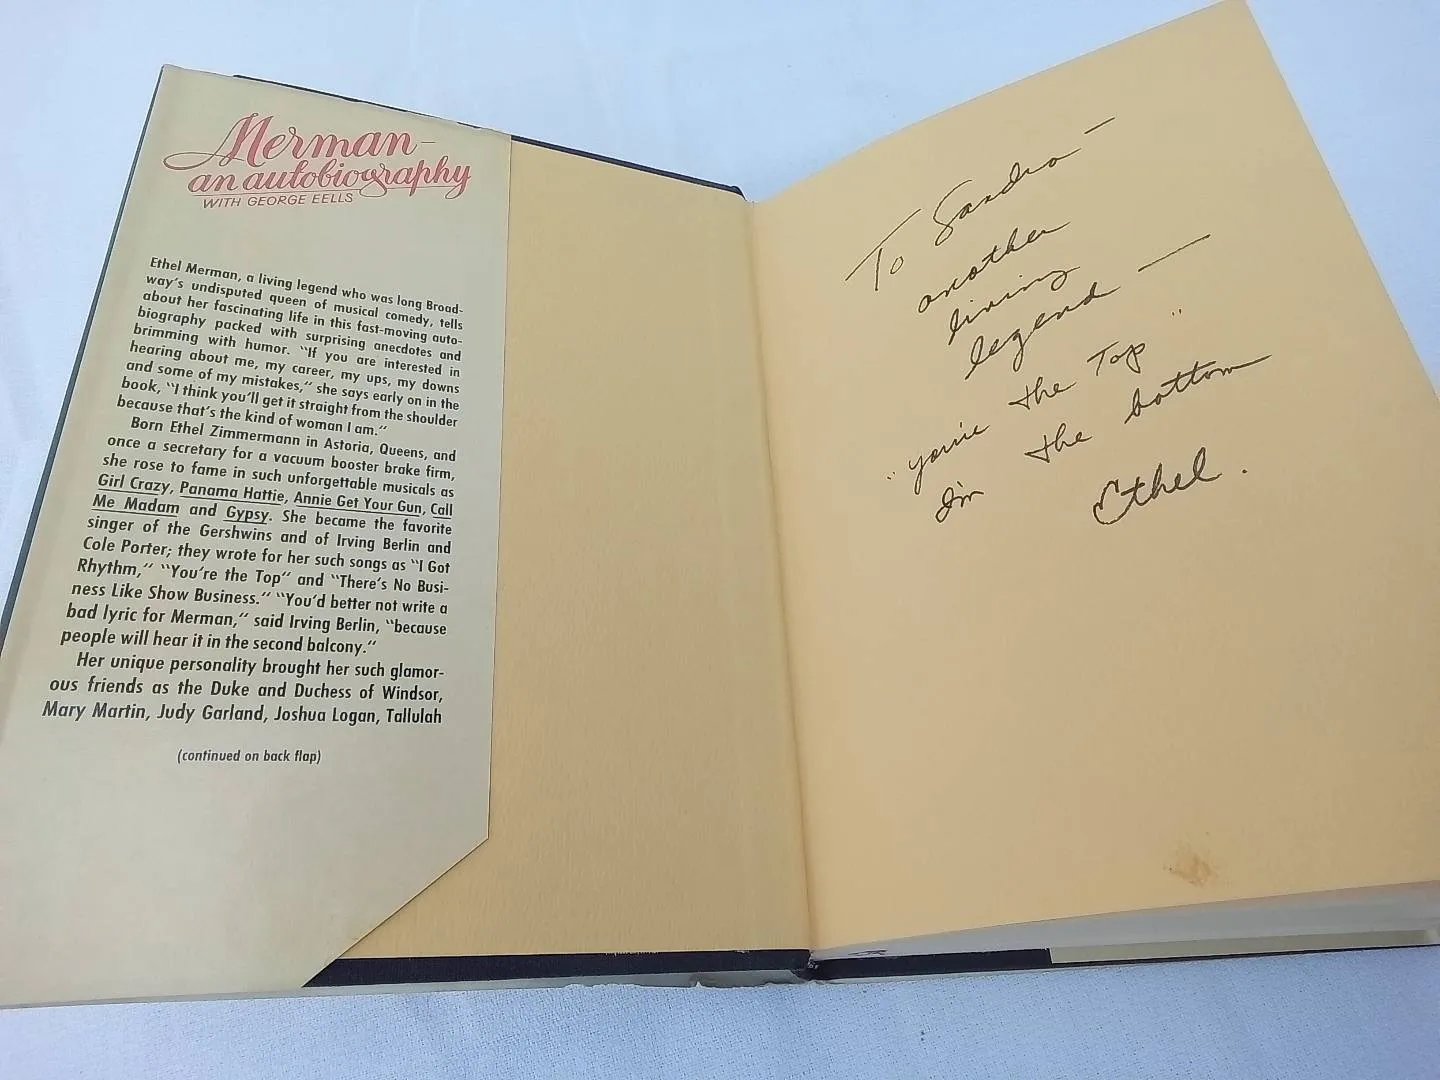 Merman-
an autobiography
WITH GEORGE EELLS
Ethel Merman, a living legend who was long Broad-
way's undisputed queen of musical comedy, tells
about her fascinating life in this fast-moving auto-
biography packed with surprising anecdotes and
brimming with humor. "If you are interested in
hearing about me, my career, my ups, my downs
and some of my mistakes," she says early on in the
book, "I think you'll get it straight from the shoulder
because that's the kind of woman I am."
Born Ethel Zimmermann in Astoria, Queens, and
once a secretary for a vacuum booster brake firm,
she rose to fame in such unforgettable musicals as
Girl Crazy, Panama Hattie, Annie Get Your Gun, Call
Me Madam and Gypsy. She became the favorite
singer of the Gershwins and of Irving Berlin and
Cole Porter; they wrote for her such songs as "I Got
Rhythm," "You're the Top" and "There's No Busi-
ness Like Show Business." "You'd better not write a
bad lyric for Merman," said Irving Berlin, "because
people will hear it in the second balcony."
Her unique personality brought her such glamor-
ous friends as the Duke and Duchess of Windsor,
Mary Martin, Judy Garland, Joshua Logan, Tallulah
(continued on back flap)
To Sandra —
another
living
legend —
"you're the Top"
I'm the bottom
Ethel.